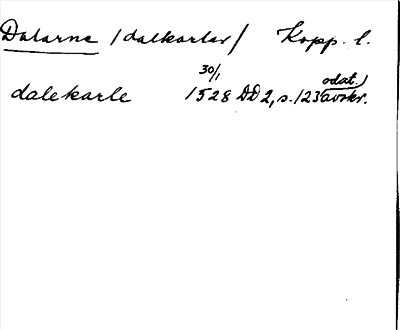 Dalarna /dalkarlar/ Kopp. l.
30/1 odat.)
dalekarle 1528 DD 2, s. 123 avskr.